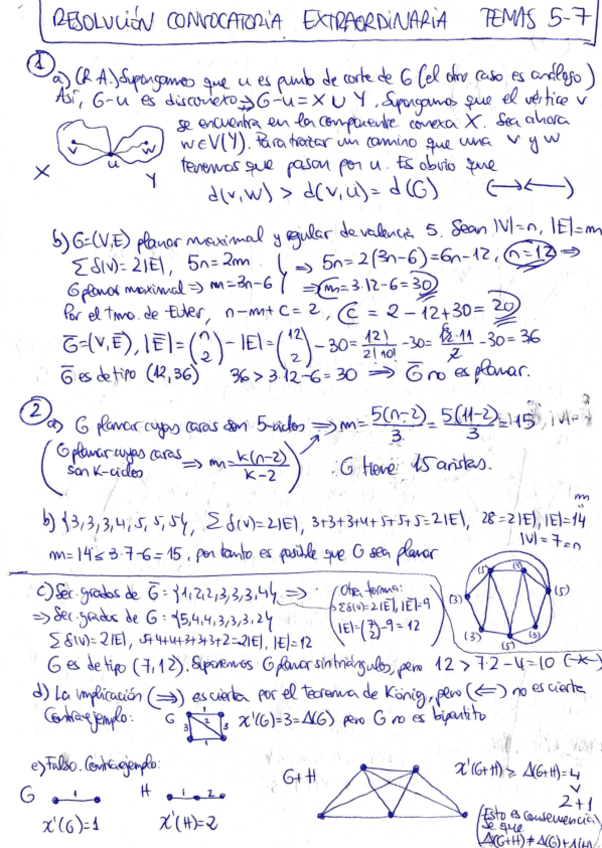 RESOLUCIÓN CONVOCATORIA EXTRAORDINARIA TEMAS 5-7
1
a) (R.A.) Supongamos que u es punto de corte de G (el otro caso es análogo)
Así, G-u es disconexo ⇒ G-u = X ∪ Y. Supongamos que el vértice v
se encuentra en la componente conexa X. Sea ahora
w∈V(Y). Para trazar un camino que una v y w
tenemos que pasar por u. Es obvio que
d(v,w) > d(v,u) = d(G) (→←)
v u w
X Y
b) G=(V,E) planar maximal y regular de valencia 5. Sean |V|=n, |E|=m
∑ δ(v) = 2|E|, 5n = 2m
G planar maximal ⇒ m=3n-6
⇒ 5n = 2(3n-6) = 6n-12, n=12 ⇒
⇒ m = 3·12-6 = 30
Por el tma. de Euler, n-m+c = 2, c = 2-12+30 = 20
Ḡ=(V,Ē), |Ē| = (n 2) - |E| = (12 2) - 30 = 12!/2!10! - 30 = 12·11/2 - 30 = 36
Ḡ es de tipo (12,36) 36 > 3·12-6 = 30 ⇒ Ḡ no es planar.
2
a) G planar cuyas caras son 5-ciclos ⇒ m = 5(n-2)/3 = 5(11-2)/3 = 15
(G planar cuyas caras son k-ciclos ⇒ m = k(n-2)/k-2)
G tiene 15 aristas.
b) {3,3,3,4,5,5,5}, ∑ δ(v) = 2|E|, 3+3+3+4+5+5+5 = 2|E|, 28 = 2|E|, |E| = 14
m
|V| = 7 = n
m = 14 ≤ 3·7-6 = 15, por tanto es posible que G sea planar
(5) (3) (5) (3) (3) (5)
c) Ser. grados de Ḡ = {1,2,2,3,3,3,4} ⇒
⇒ Ser. grados de G = {5,4,4,3,3,3,2}
(Otra forma:
∑δ(v)=2|E|, |E|=9
|E| = (7 2) - 9 = 12)
∑ δ(v) = 2|E|, 5+4+4+3+3+3+2 = 2|E|, |E| = 12
G es de tipo (7,12). Suponemos G planar sin triángulos, pero 12 > 7·2-4 = 10 (→←)
d) La implicación (⇒) es cierta por el teorema de König, pero (⇐) no es cierta
Contraejemplo: G χ'(G) = 3 = Δ(G) pero G no es bipartito
1 2 3 3 1
e) Falso. Contraejemplo:
G 1 H 1 2 G+H χ'(G+H) ≥ Δ(G+H) = 4
2+1
χ'(G)=1 χ'(H)=2
(Esto es consecuencia
de que
Δ(G+H) ≠ Δ(G)+Δ(H))